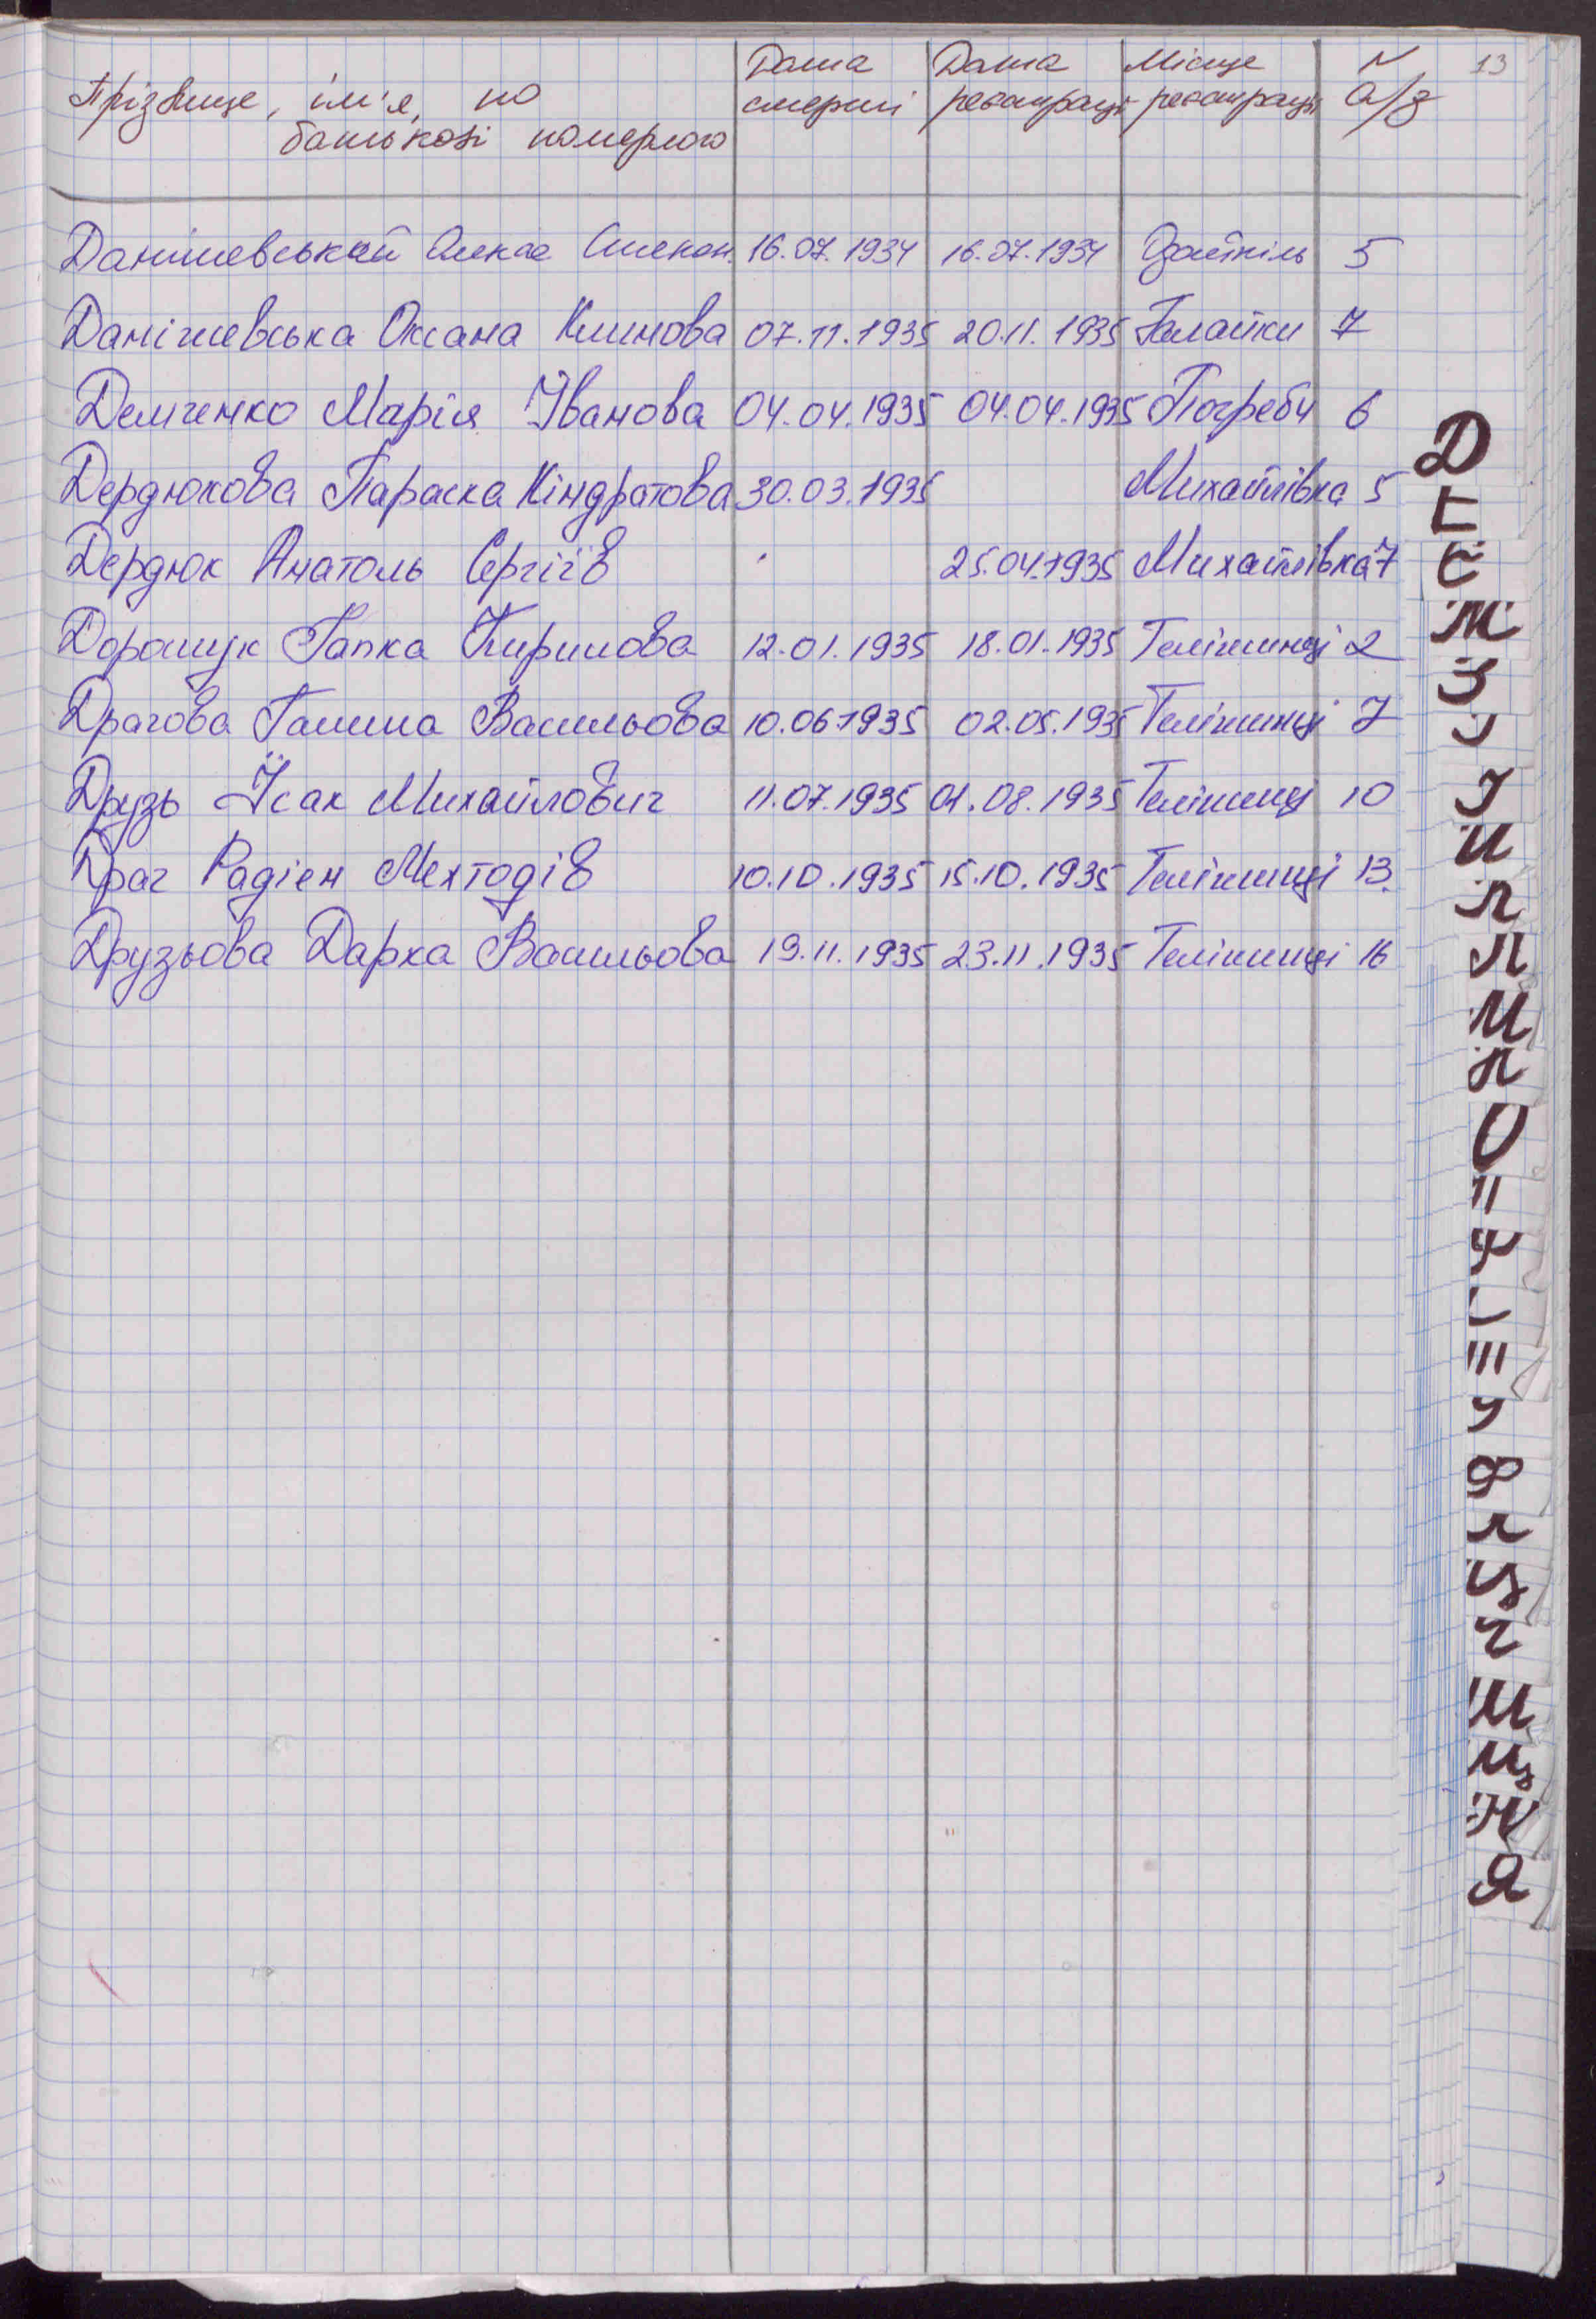 13
Прізвище, ім'я, по батькові померлого Дата смерті Дата реєстрації Місце реєстрації № а/з
Данішевський Олекса Степан. 16.07.1934 16.07.1934 5
Данішевська Оксана Климова 07.11.1935 20.11.1935 Галайки 7
Демченко Марія Іванова 04.04.1935 04.04.1935 Погреби 6
Дердюкова Параска Кіндратова 30.03.1935 Михайлівка 5
Дердюк Анатоль Сергіїв 25.04.1935 Михайлівка 7
Дорошук Гапка Кирилова 12.01.1935 18.01.1935 Теліжинці 2
Драгова Галина Васильова 10.06.1935 02.05.1935 Теліжинці 7
Друзь Ісак Михайлович 11.07.1935 01.08.1935 Теліжинці 10
Драг Радієн Мехтодів 10.10.1935 15.10.1935 Теліжинці 13.
Друзьова Дарка Васильова 19.11.1935 23.11.1935 Теліжинці 16
Д
Ж
З
І
И
Л
М
Н
О
У
Ф
Ц
Ч
Ш
Щ
Ю
Я